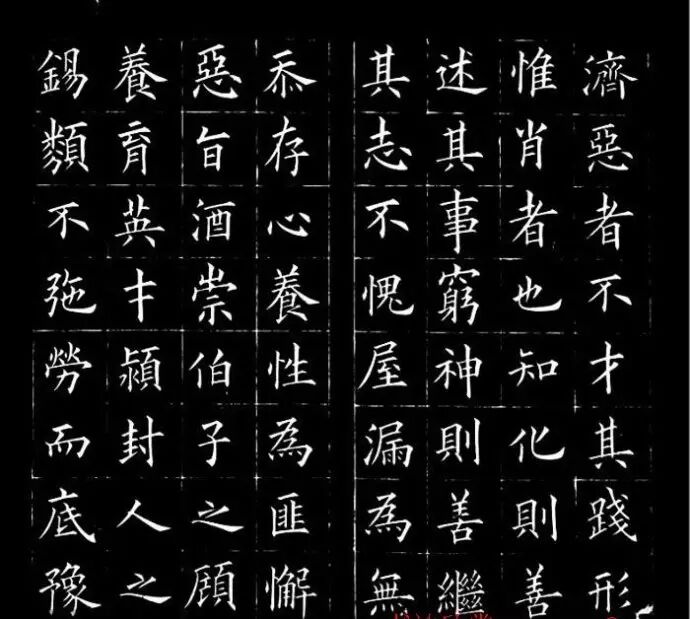 濟惡者不才其踐形
惟肖者也知化則善
述其事窮神則善繼
其志不愧屋漏為無
忝存心養性為匪懈
惡旨酒崇伯子之顧
養育英才潁封人之
錫類不弛勞而底豫